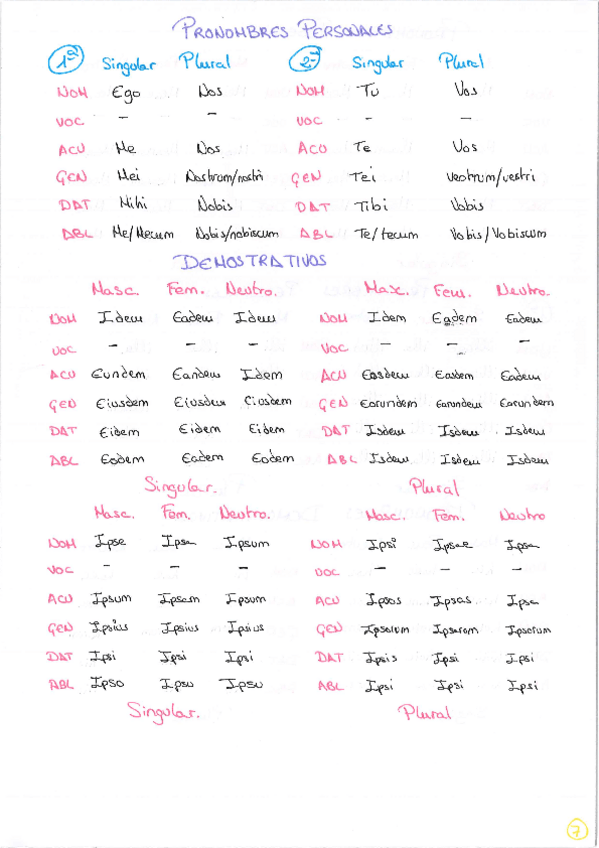 PRONOMBRES PERSONALES
1ª Singular Plural 2ª Singular Plural
NOM Ego Nos NOM Tu Vos
VOC - - VOC - -
ACU Me Nos ACU Te Vos
GEN Mei Nostrum/nostri GEN Tei veotrum/vestri
DAT Mihi Nobis DAT Tibi Vobis
ABL Me/Mecum Nobis/nobiscum ABL Te/tecum Vobis/Vobiscum
DEMOSTRATIVOS
Masc. Fem. Neutro. Masc. Fem. Neutro.
NOM Idem Eadem Idem NOM Idem Eadem Eadem
VOC - - - VOC - - -
ACU Eundem Eandem Idem ACU Eosdem Easdem Eadem
GEN Eiusdem Eiusdem Eiusdem GEN Eorundem Earundem Eorundem
DAT Eidem Eidem Eidem DAT Isdem Isdem Isdem
ABL Eodem Eadem Eodem ABL Isdem Isdem Isdem
Singular. Plural
Masc. Fem. Neutro. Masc. Fem. Neutro
NOM Ipse Ipsa Ipsum NOM Ipsi Ipsae Ipsa
VOC - - - VOC - - -
ACU Ipsum Ipsam Ipsum ACU Ipsos Ipsas Ipsa
GEN Ipsius Ipsius Ipsius GEN Ipsorum Ipsarum Ipsorum
DAT Ipsi Ipsi Ipsi DAT Ipsis Ipsi Ipsi
ABL Ipso Ipso Ipso ABL Ipsi Ipsi Ipsi
Singular. Plural
7